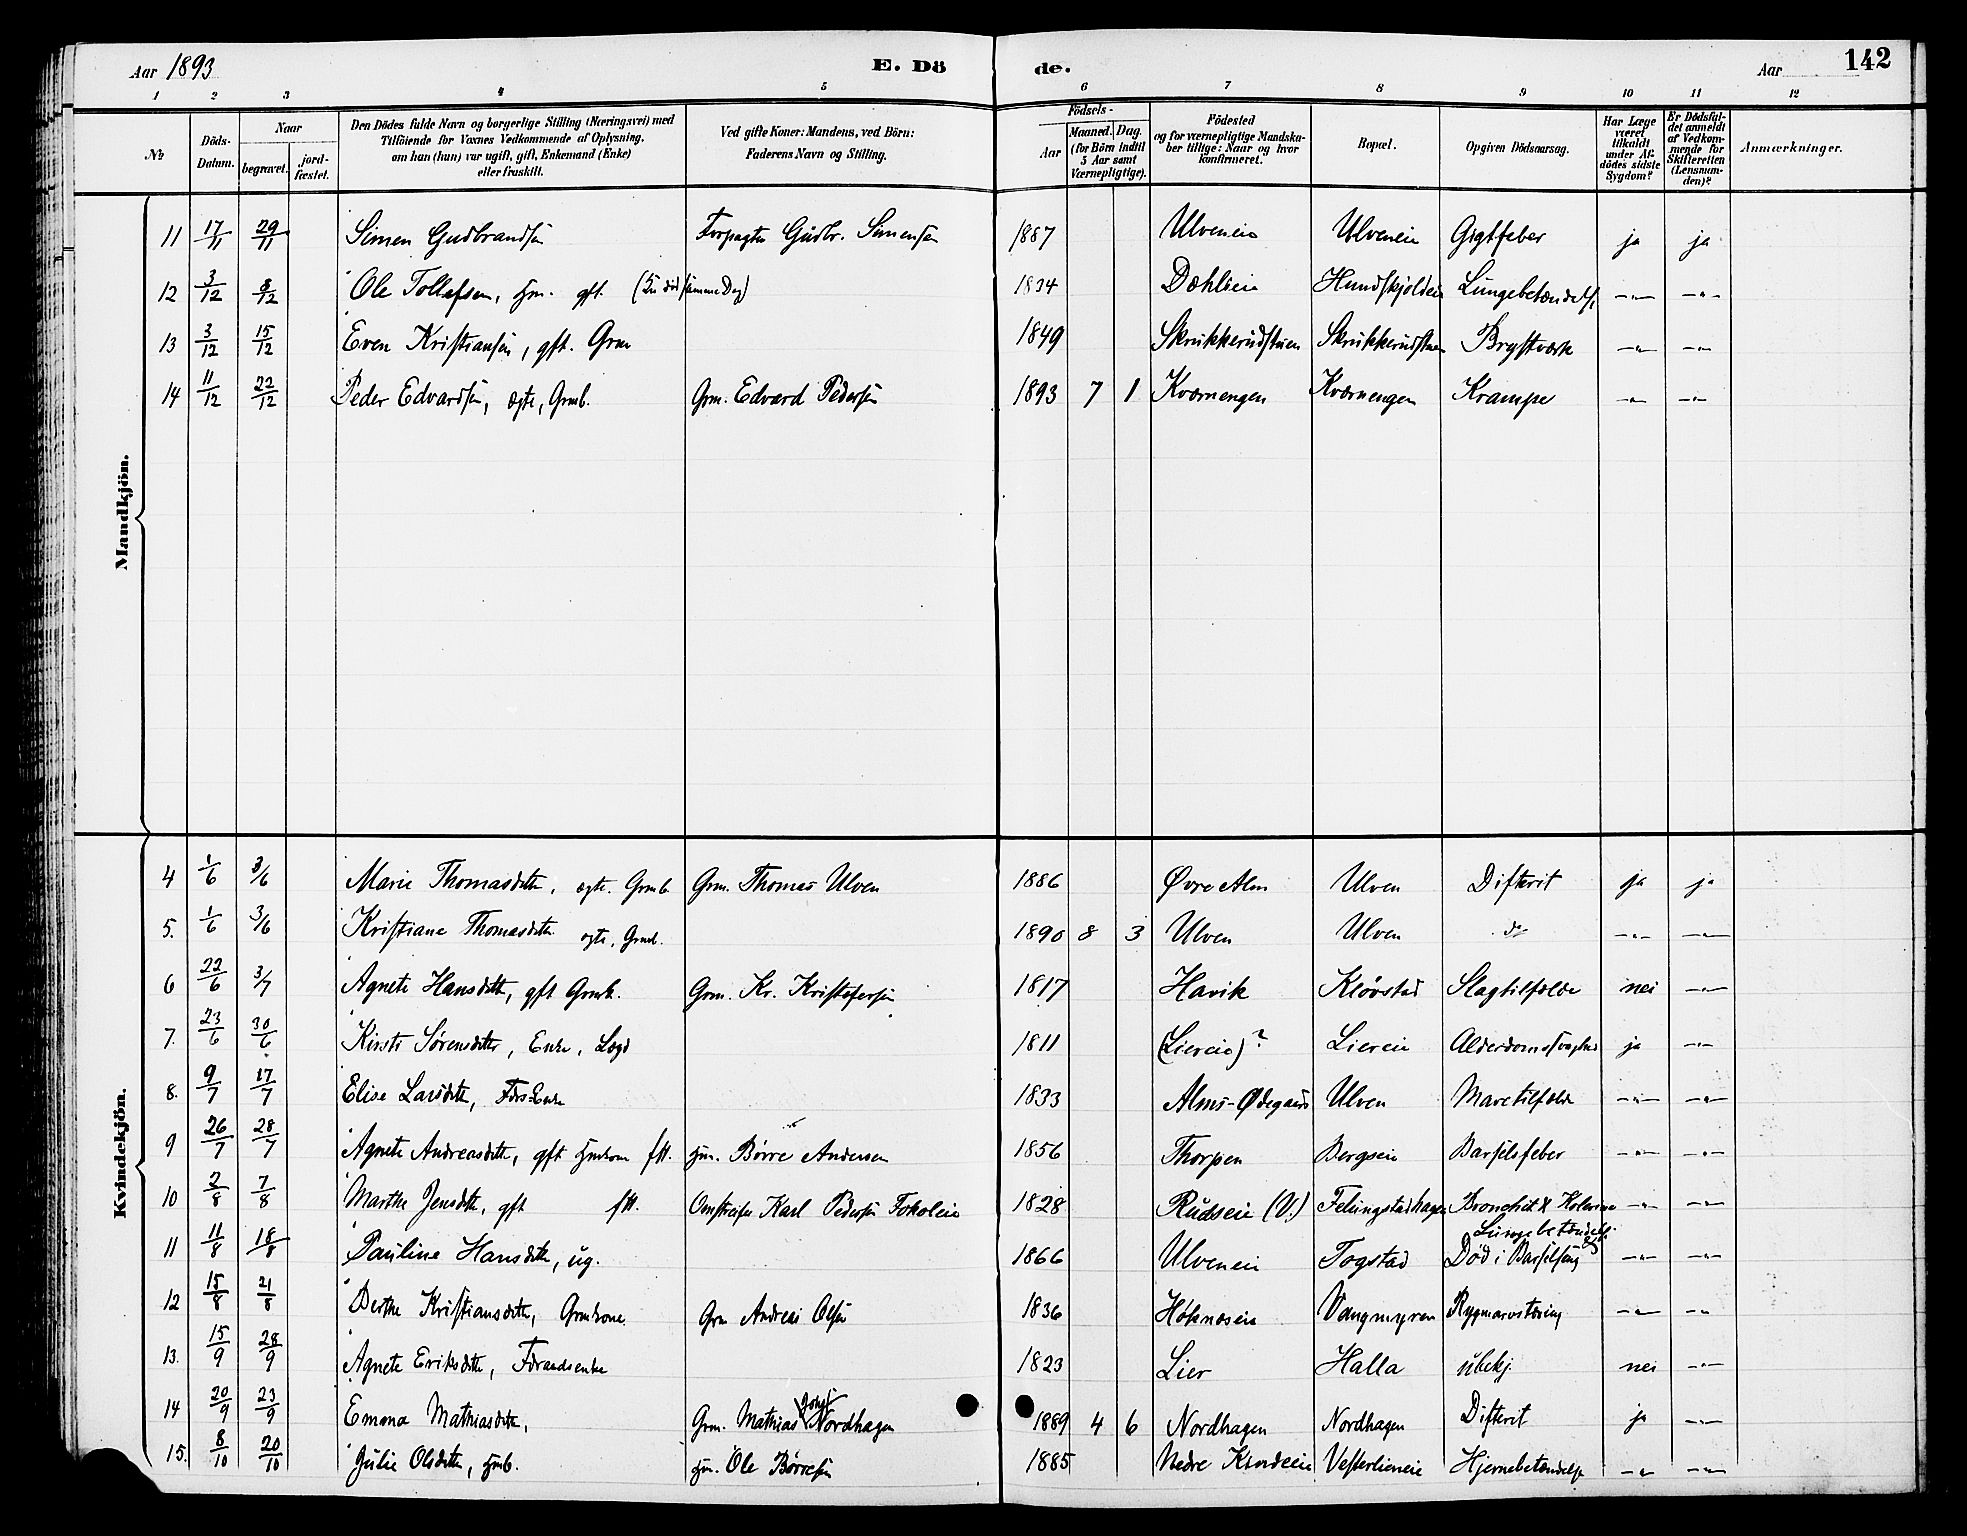 Aar 1893 E. Dö de. Aar 142
1 2 3 4 5 6 7 8 9 10 11 12
№ Döds-Datum. Naar begravet. jord-fæstet. Den Dödes fulde Navn og borgerlige Stilling (Næringsvei) med Tilföiende for Voxnes Vedkommende af Oplysning, om han (hun) var ugift, gift, Enkemand (Enke) eller fraskilt. Ved gifte Koner: Mandens, ved Börn: Faderens Navn og Stilling. Födsels- Aar Maaned. Dag. (for Börn indtil 3 Aar samt Værnepligtige). Födested og for værnepligtige Mandska-ber tillige: Naar og hvor konfirmeret. Bopæl. Opgiven Dödsaarsag. Har Læge været tilkaldt under Af-dödes sidste Sygdom? Er Dödsfal-det anmeldt af Vedkom-mende for Skifteretten (Lensman-den)? Anmærkninger.
Mandkjön.
11 17/11 29/11 Simen Gudbrandsen Forpagter Gudbr. Simensen 1887 Ulveneie Ulveneie Gigtfeber ja ja
12 3/12 8/12 Ole Tollefsen, hjm. gft. 1834 Dæhlieie Hundskjoldeie Lungebetændelse -"- -"-
13 3/12 15/12 Even Kristiansen, gft. Grm 1849 Skrukkerudstuen Skrukkerudstuen Brystværk -"- -"-
14 11/12 22/12 Peder Edvardsen, ægte, Grmb. Grm. Edvard Pedersen 1893 7 1 Kværnengen Kværnengen Krampe -"- -"-
Kvindekjön.
4 1/6 3/6 Marie Thomasdtr, ægte. Grmb Grm. Thomas Ulven 1886 Øvre Alm Ulven Difterit ja ja
5. 1/6 3/6 Kristiane Thomasdtr ægte, Grmb. 1890 8 3 Ulven Ulven do -"- -"-
6 22/6 3/7 Agnete Hansdtr, gft Grmk. Grm. Kr. Kristofersen 1817 Havik Kløvstad Slagtilfælde nei -"-
7. 23/6 30/6 Kirsti Sørensdtr, Enke, Lægd 1811 (Liereie)? Liereie ja -"-
8. 9/7 17/7 Elise Larsdtr, 1833 Alms-Ødegaard Ulven Mavetilfælde -"- -"-
9 26/7 28/7 Agnete Andreasdtr, gft hjmkone ftt. hjm. Børre Andersen 1856 Thorpen Bergseie Barselsfeber -"- -"-
10 2/8 7/8 Marthe Jensdtr, gft ftt. Omstreifer Karl Pedersen 1828 Rudseie (V.) Bronchit & Kolerine -"- -"-
11 11/8 18/8 Pauline Hansdtr, ug. 1866 Ulveneie Togstad Lungebetændelse Død i Barselseng -"- -"-
12 15/8 21/8 Berthe Kristiansdtr, Grmkone. Grm Andreas Olsen 1836 Høknæseie Vangmyren Rygmarvstæring -"- -"-
13. 15/9 28/9 Agnete Eriksdtr, Føraadsenke 1823 Lier Halla ubekj. nei -"-
14 20/9 23/9 Emma Mathiasdtr, Grm. Mathias Johs. Nordhagen 1889 4 6 Nordhagen Nordhagen Difterit ja -"-
15. 8/10 20/10 Julie Olsdtr, hjmb. hjm. Ole Børresen 1885 Nedre Kindeeie Vesterlieneie Hjernebetændelse -"- -"-